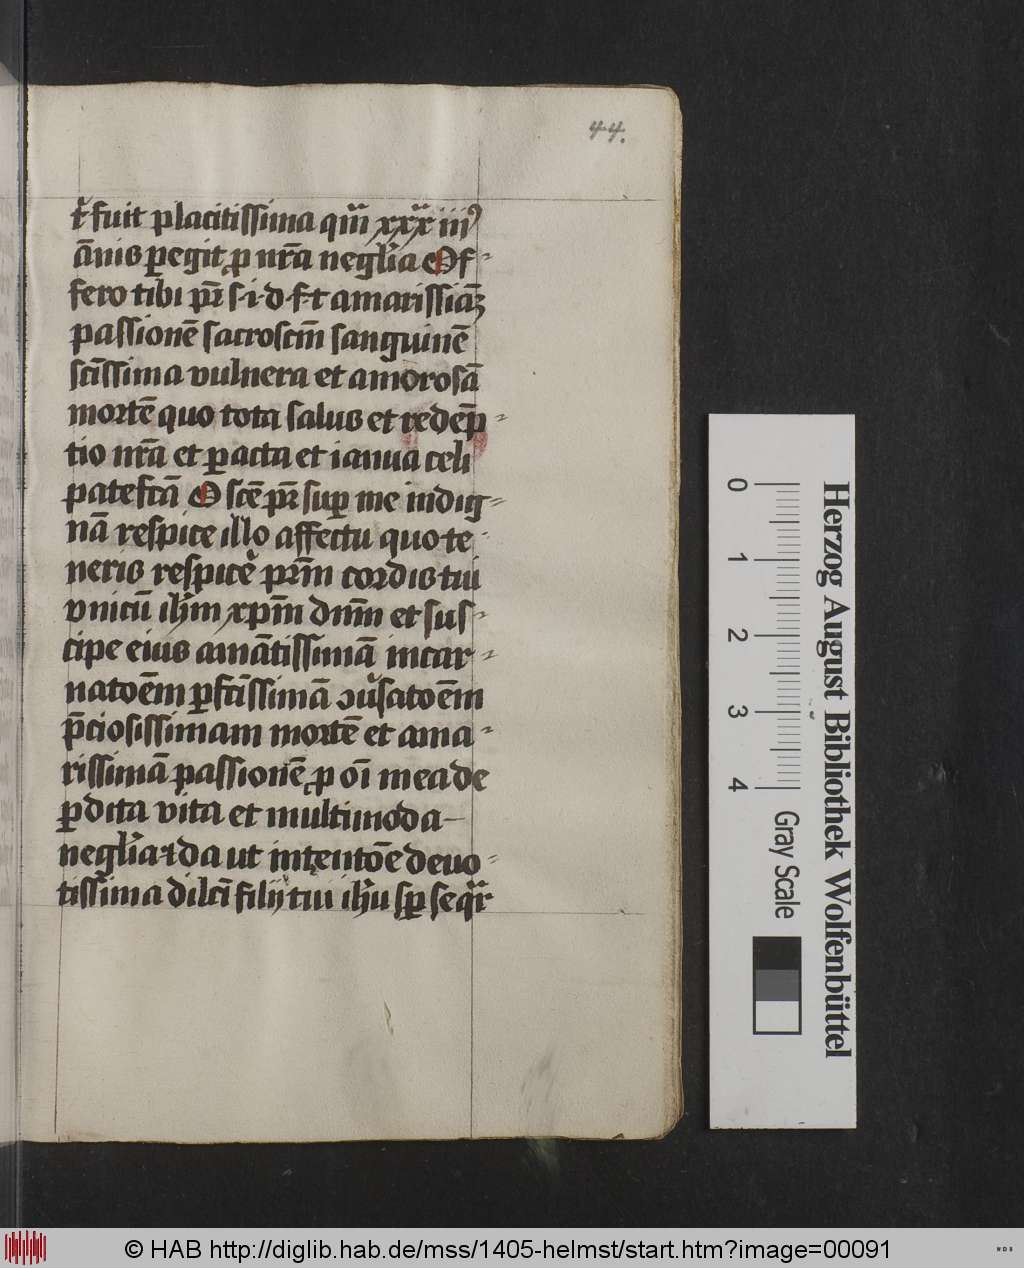 44.
t᷑ fuit placitissima qm̄ xxx iiiꝰ
ānis ꝑegit ꝓ nr̄a negl̓ia Of⸗
fero tibi pr̄ s·i·d·f·t amarissiā
passionē sacrosctm̄ sanguinē
sctīssima vulnera et amorosā
mortē quo tota salus et redēp⸗
tio nr̄a et ꝑacta et ianua celi
patefctā O sctē pr̄ suꝑ me indig⸗
nā respice illo affectu quo te⸗
neris respicē pr̄m cordis tui
vnicū ih̄m xp̄m dnm̄ et sus⸗
cipe eius amātissimā incar⸗
natoēm ꝑfctīssimā ↄuͤsatoēm
p̄ciosissimam mortē et ama⸗
rissimā passionē ꝓ oī mea de
ꝑdita vita et multimoda
negl̓ia ⁊ da ut intentōe deuo⸗
tissima dilcī filij tui ih̄u sꝑ seqr̄
0
1
2
3
4
Gray Scale
Herzog August Bibliothek Wolfenbüttel
© HAB http://diglib.hab.de/mss/1405-helmst/start.htm?image=00091